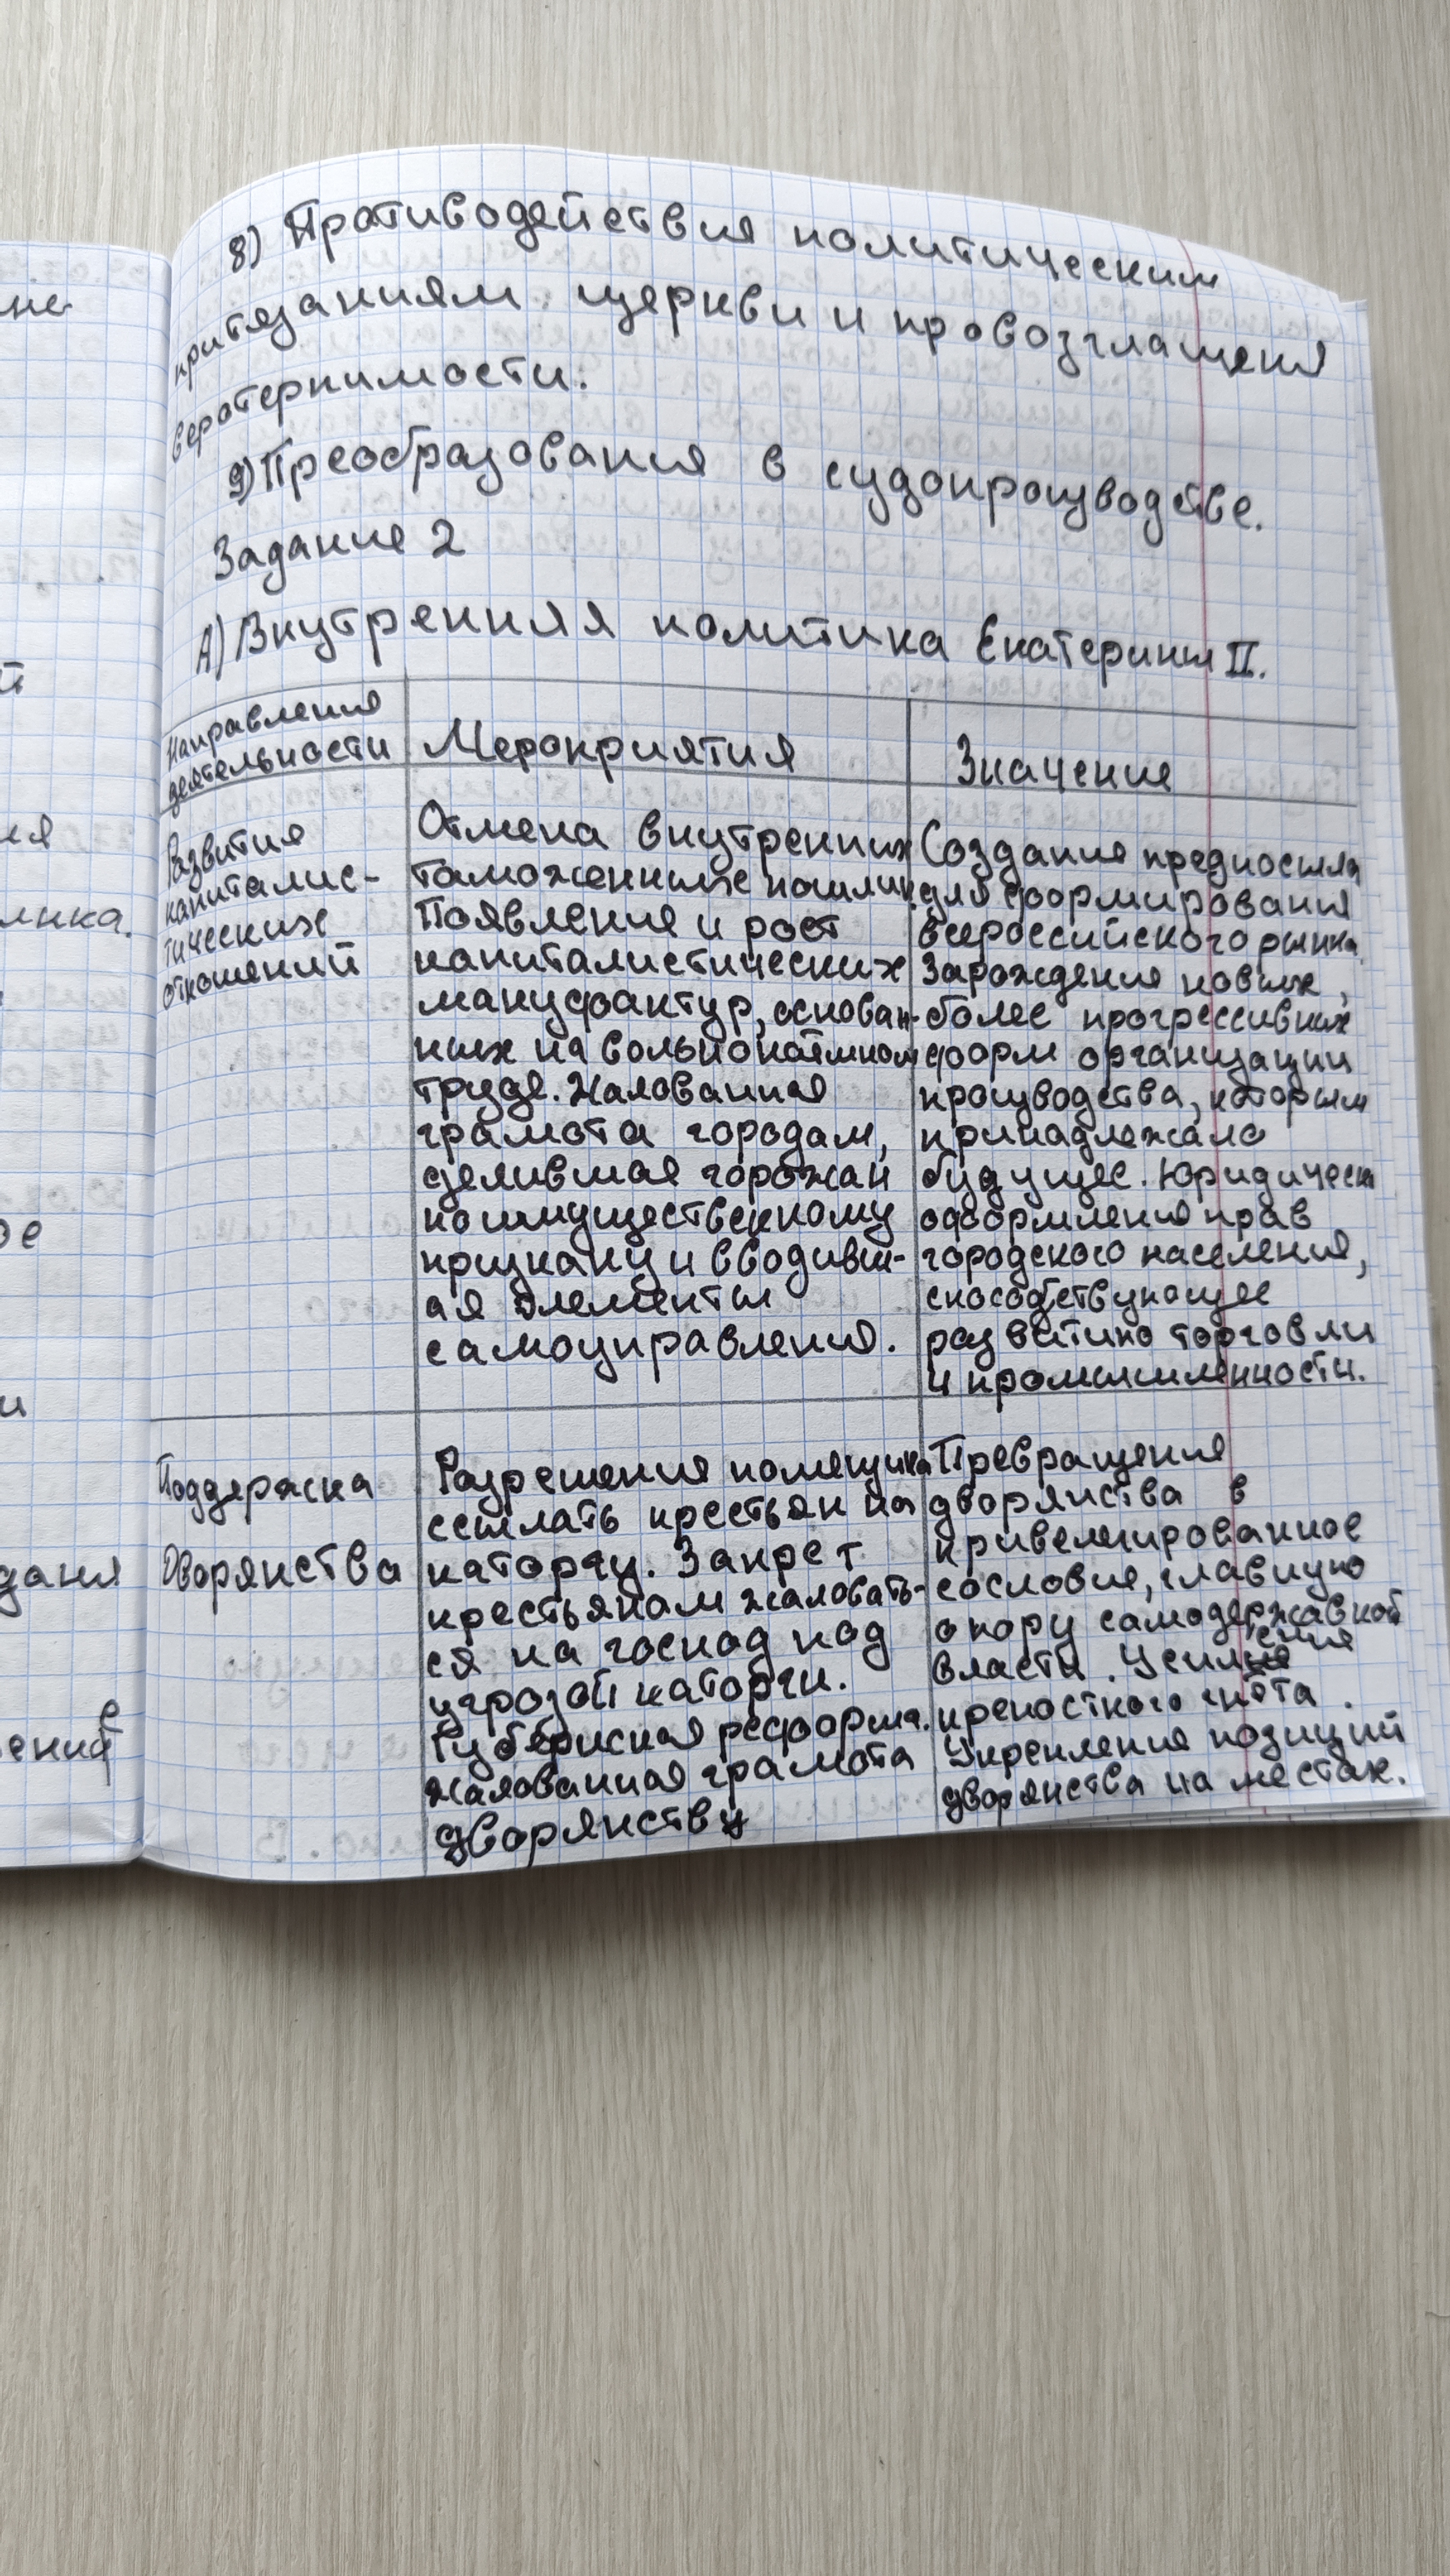 8) Противодействия политическим
притязаниям церкви и провозглащения
веротерпимости.
9) Преобразования в судопроизводстве.
Задание 2
А) Внутренняя политика Екатерины II.
Направления
деятельности
Мероприятия
Значение
Развития
капиталис-
тических
отношений
Отмена внутренних
таможенных пошлин.
Появления и рост
капиталистических
мануфактур, основан-
ных на вольнонаёмном
труде. Жалованная
грамота городам,
делившая горожан
по имущественному
признаку и вводивш-
ая элементы
самоуправления.
Создания предпосыла
для формирования
всероссийского рынка.
Зарождения новых,
более прогрессивных
форм организации
производства, которым
принадлежало
будущее. Юридическ
оформления прав
городского населения,
способствующее
развитию торговли
и промышленности.
Поддержка
Дворянства
Разрешения помещика
ссылать крестьян на
каторгу. Запрет
крестьянам жаловать-
ся на господ под
угрозой каторги.
Губернская реформа.
жалованная грамота
дворянству
Превращения
дворянства в
привелегированное
сословие, главную
опору самодержавной
власти. Усиления
крепостного гнёта.
Укрепления позиций
дворянства на местах.
не
ия
лика.
ое
и
дания
ений